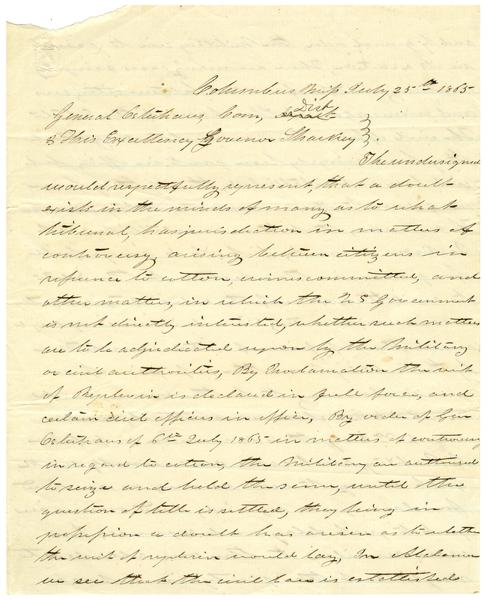 Columbus Miss July 25th 1865
General Osterhaus Com, Dist
& His Excellency Governor Sharkey
The undersigned
would respectfully represent, that a doubt
exists in the minds of many as to what
tribunal, has jurisdiction in matters of
controversy arising between citizens in
refrence to cotton, crimes committed, and
other matters, in which the U S Government
is not directly interested, whether such matters
are to be adjudicated upon by the Military
or civil authorities, By Proclamation the writ
of Replevin is declared in full force, and
certain civil officers in office, By order of Gen
Osterhaus of 6th July 1865 in matters of controversy
in regard to cotton, the Military are authorized
to seize and hold the same, until the
question of title is settled, they being in
possession a doubt has arisen as to whether
the writ of replevin would lay, In Alabama
we see that the civil law is established